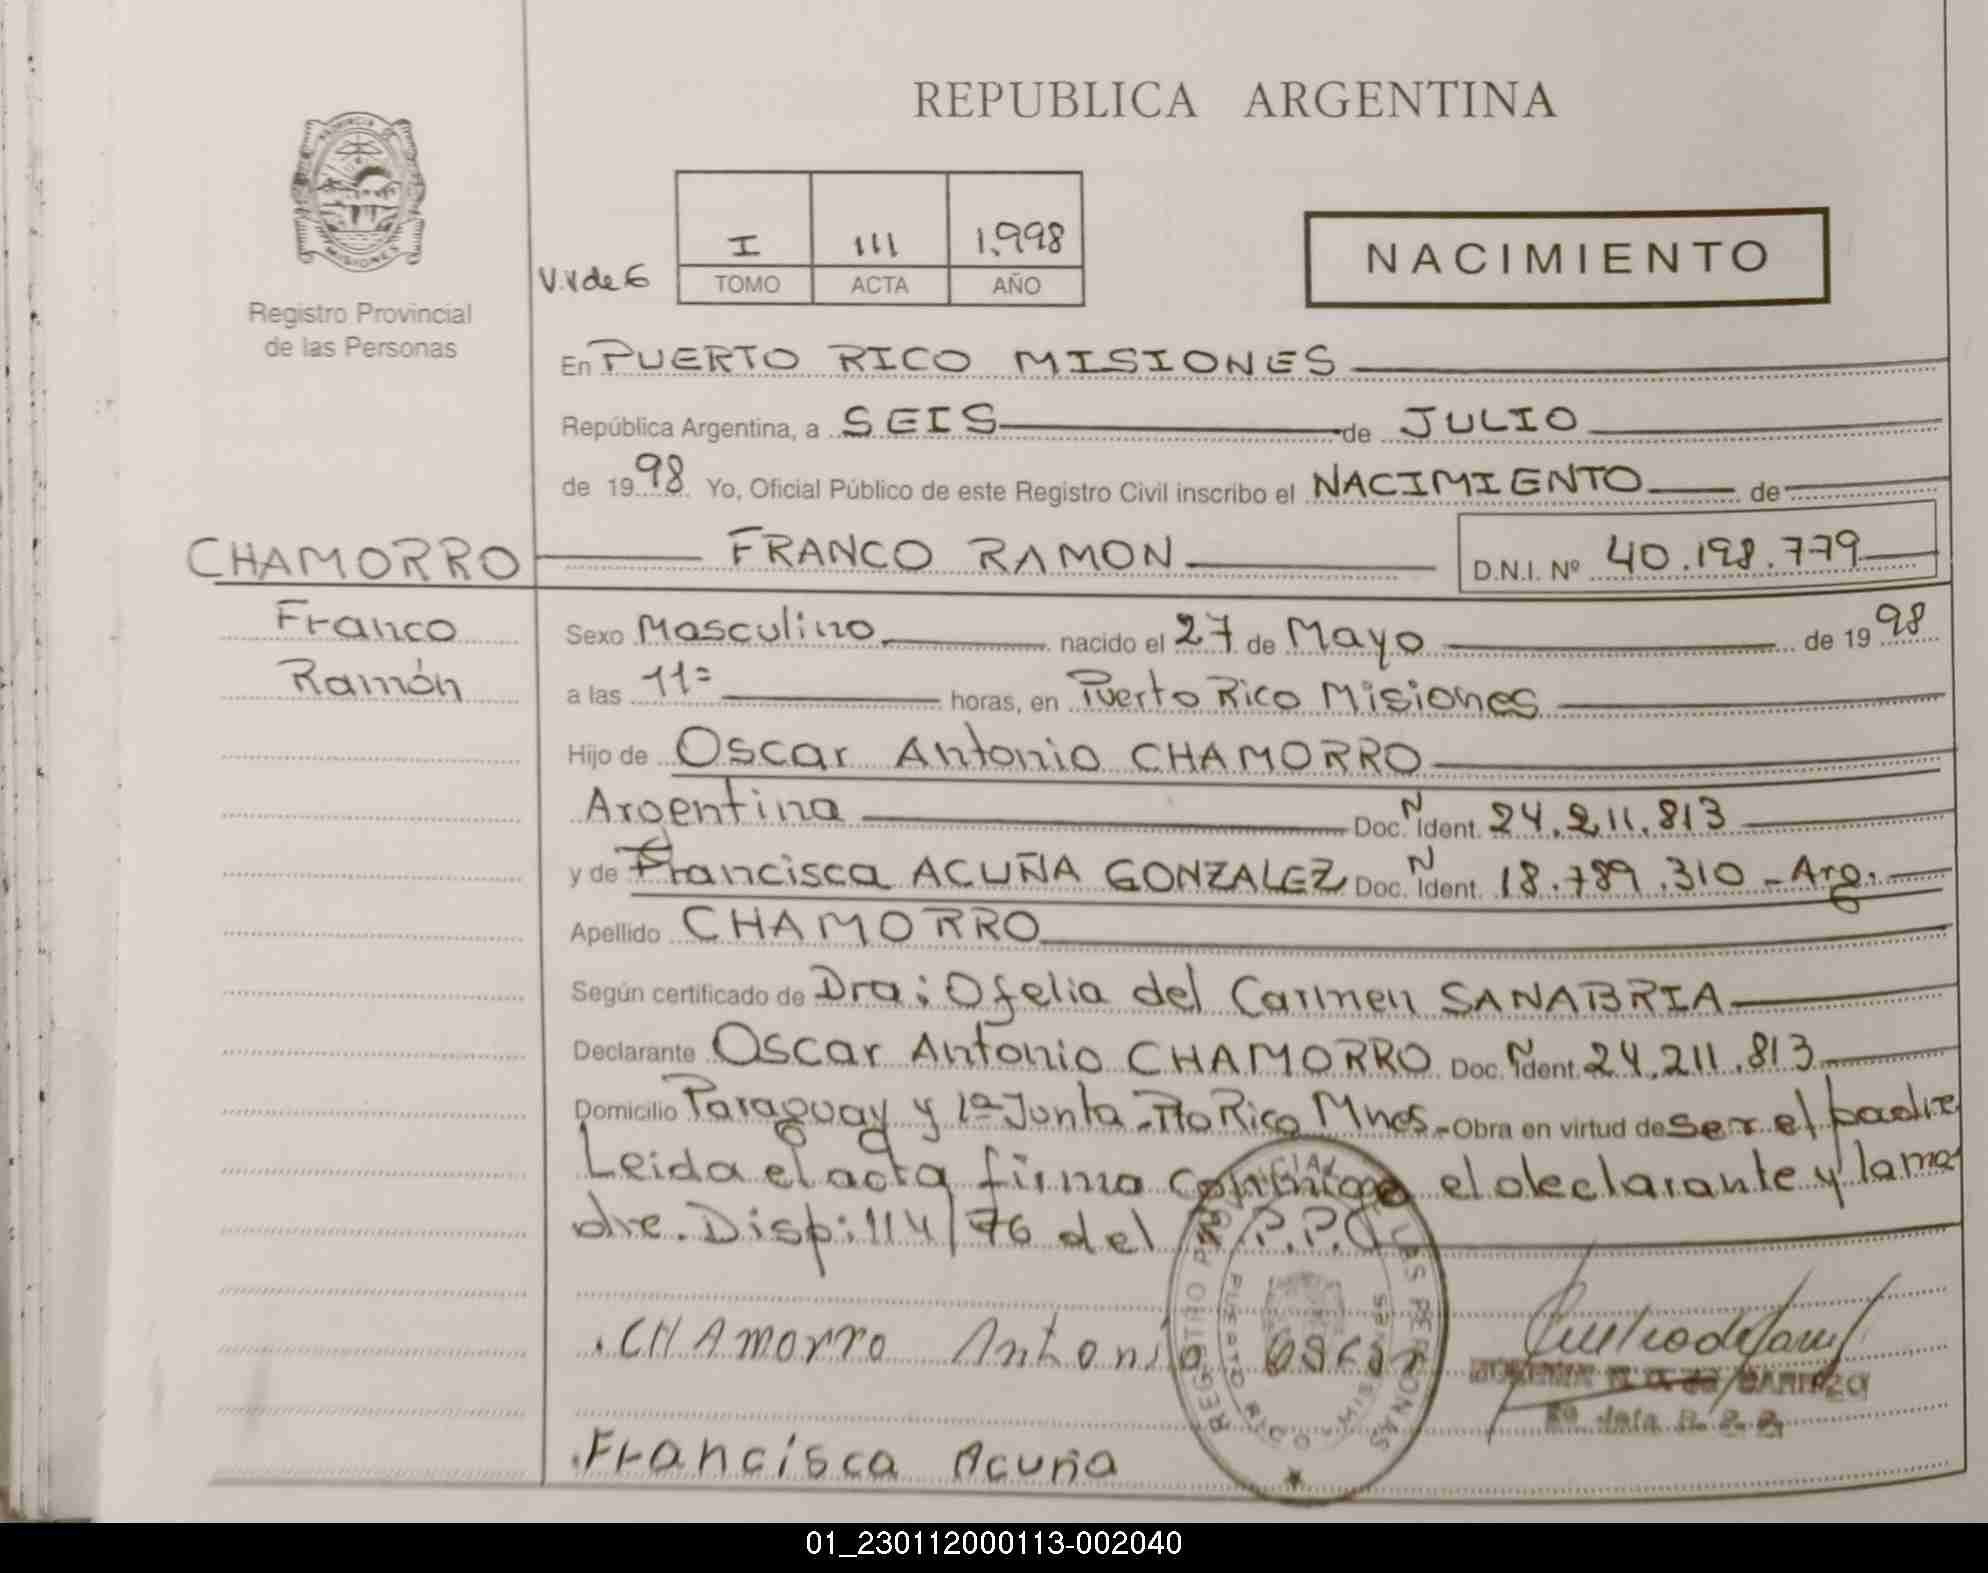 REPUBLICA ARGENTINA
PROVINCIA DE MISIONES
Registro Provincial
de las Personas
V.V de 6
I 111 1.998
TOMO ACTA AÑO
NACIMIENTO
En PUERTO RICO MISIONES
República Argentina, a SEIS de JULIO
de 1998 Yo, Oficial Público de este Registro Civil inscribo el NACIMIENTO de
CHAMORRO FRANCO RAMON D.N.I. Nº 40.198.779
Franco
Ramón
Sexo Masculino nacido el 27 de Mayo de 1998
a las 11= horas, en Puerto Rico Misiones
Hijo de Oscar Antonio CHAMORRO
Argentina Doc. N Ident. 24.211.813
y de Francisca ACUÑA GONZALEZ Doc. N Ident. 18.789.310 - Arg.
Apellido CHAMORRO
Según certificado de Dra: Ofelia del Carmen SANABRIA
Declarante Oscar Antonio CHAMORRO Doc. N Ident. 24.211.813
Domicilio Paraguay y 1ª Junta - Pto Rico Mnes. Obra en virtud de ser el padre
Leida el acta firma conmigo el declarante y la ma
dre. Disp: 114/76 del R.P.P.
REGISTRO PROVINCIAL DE LAS PERSONAS
PUERTO RICO MISIONES
CHAmorro Antonio Oscar
Francisca Acuña
01_230112000113-002040